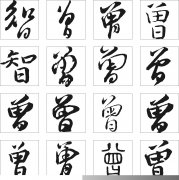 智 曾 曾 曾
智 曾 曾 曾
曾 曾 曾 曾
曾 曾 曾 曾